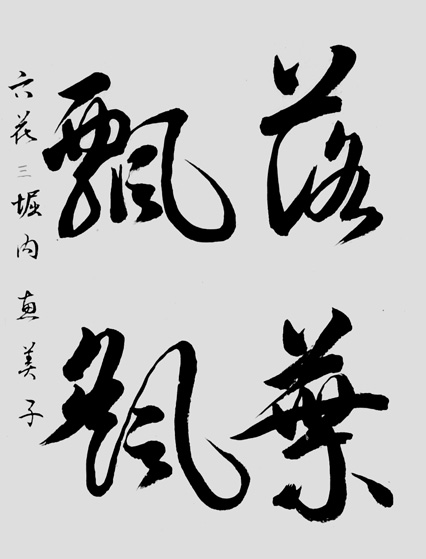 落葉
飄颻
六花 三 堀内 恵美子